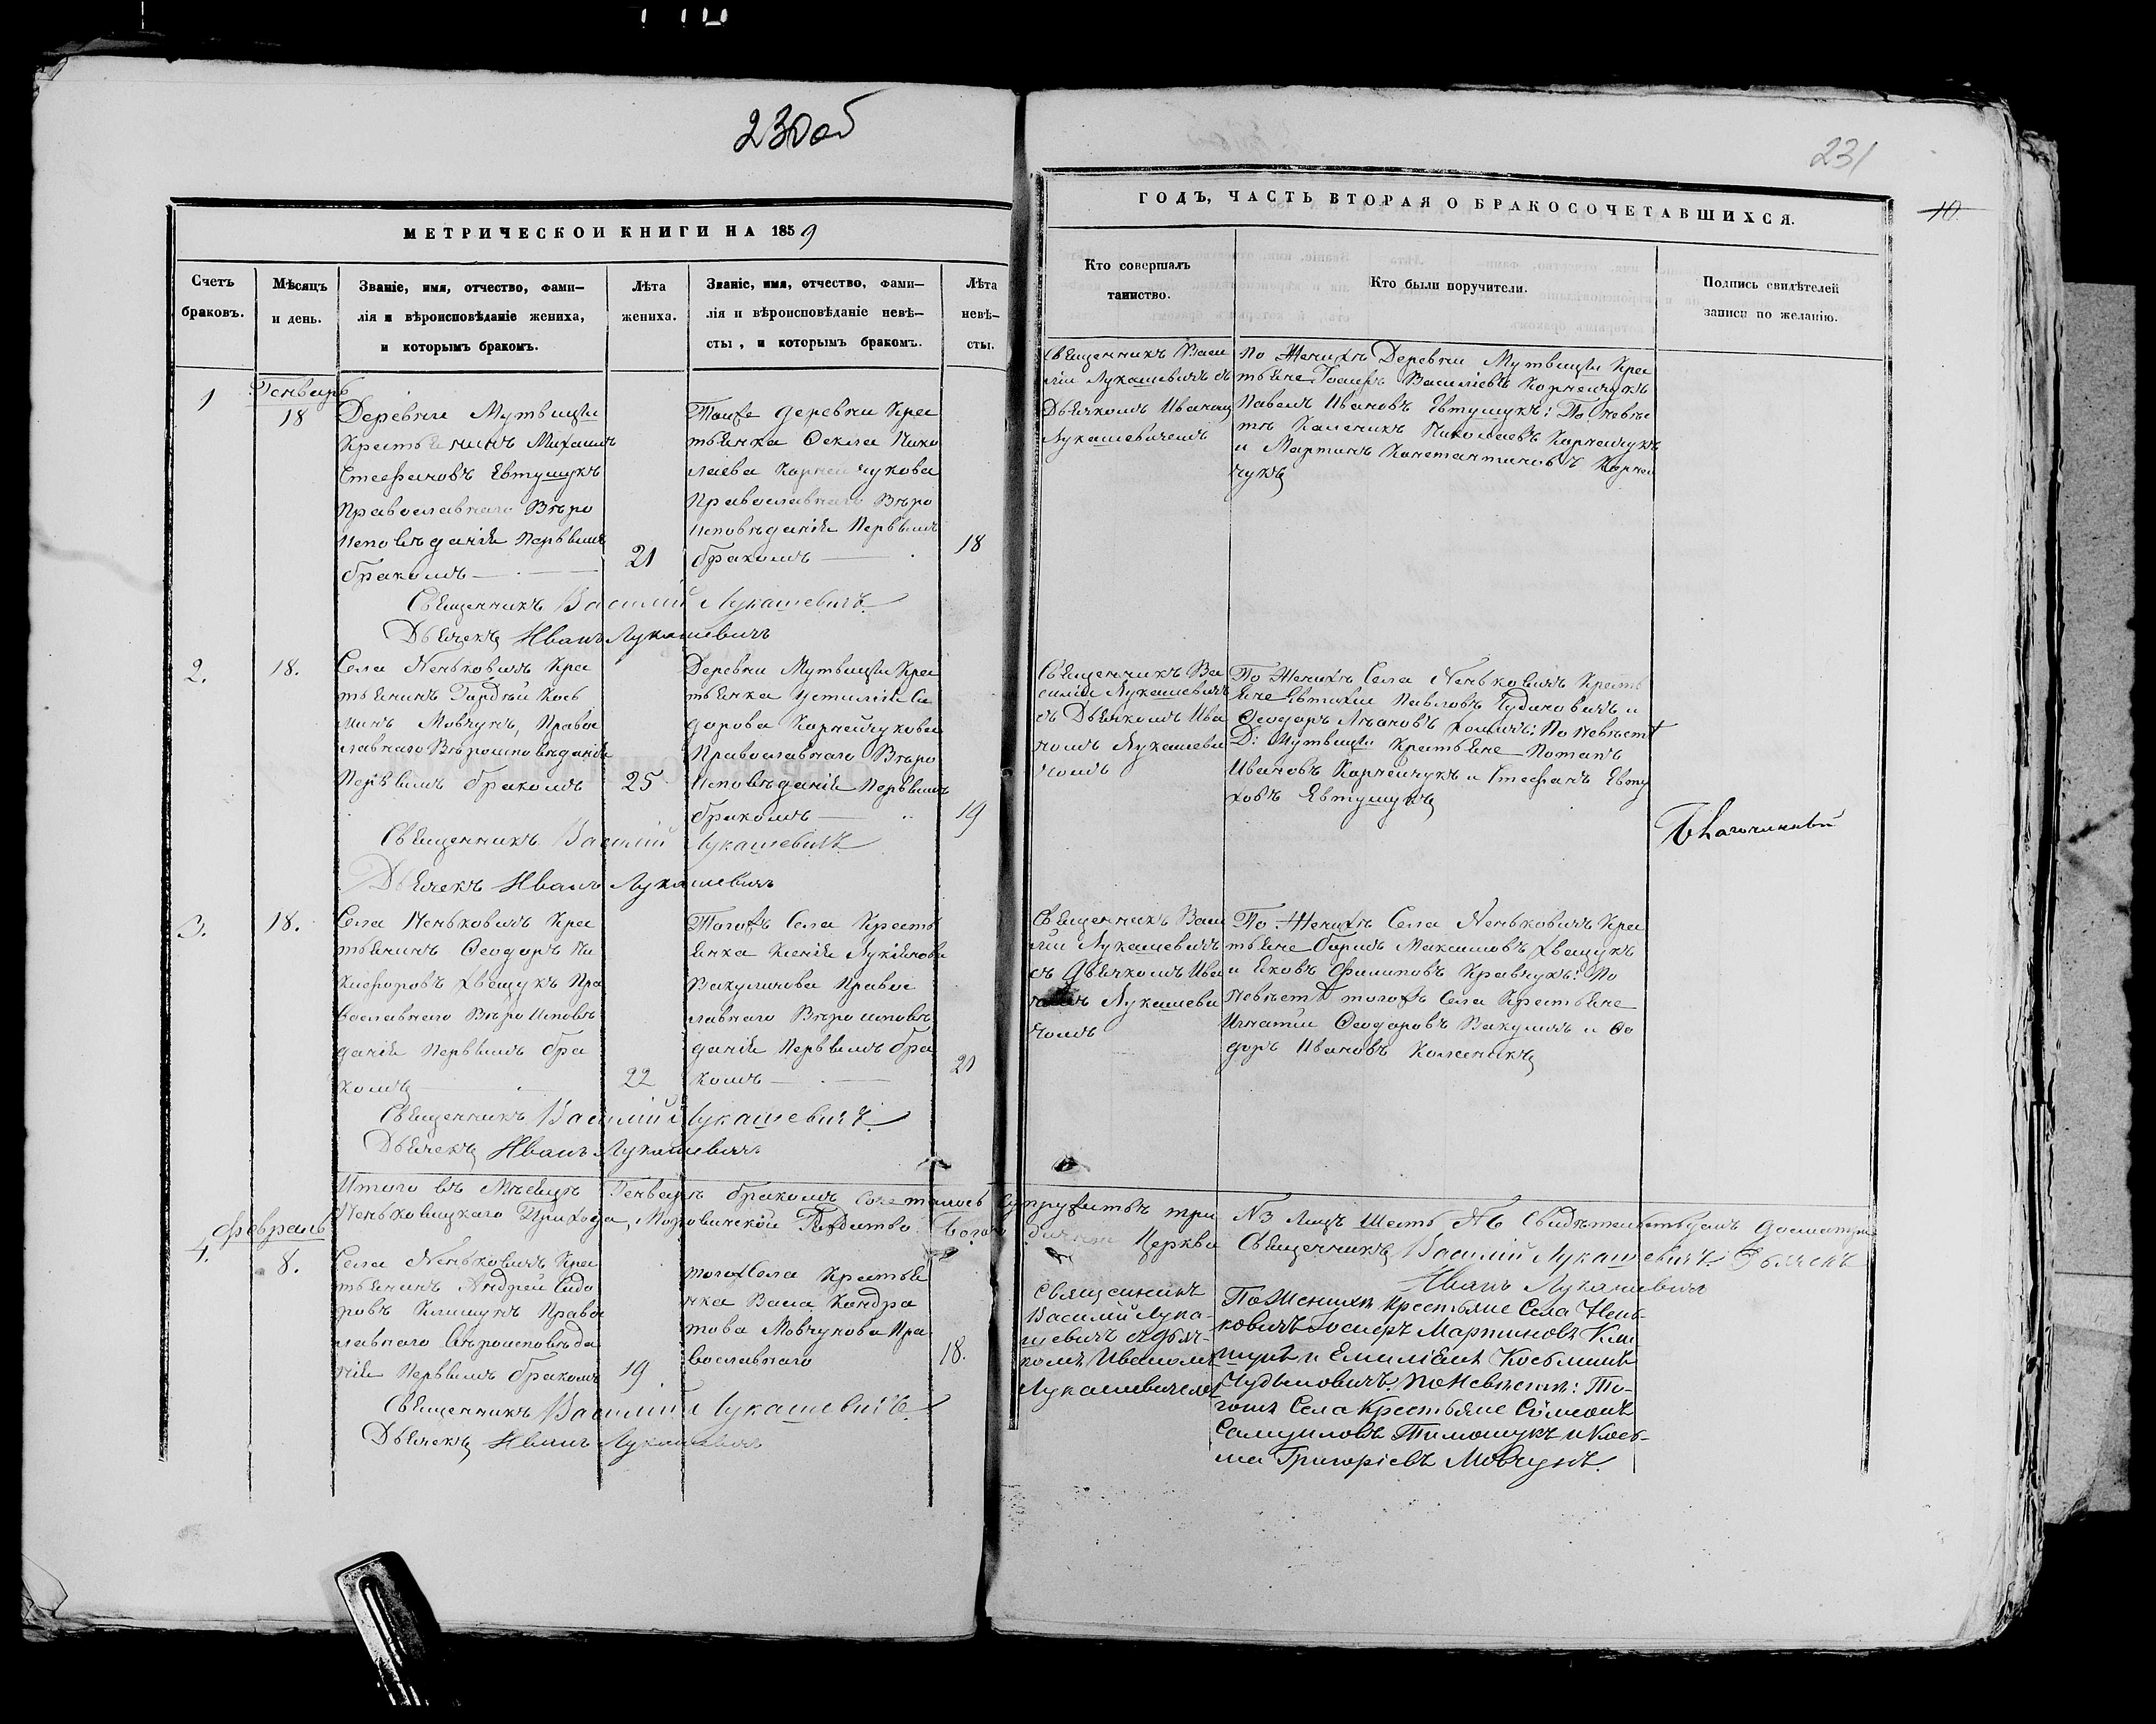 230об
231
10.
МЕТРИЧЕСКОЙ КНИГИ НА 1859
ГОДЪ, ЧАСТЬ ВТОРАЯ О БРАКОСОЧЕТАВШИХСЯ.
Счетъ
браковъ.
Мѣсяцъ
и день.
Званіе, имя, отчество, фами—
лія и вѣроисповѣданіе жениха,
и которымъ бракомъ.
Лѣта
жениха.
Званіе, имя, отчество, фами—
лія и вѣроисповѣданіе невѣ—
сты, и которымъ бракомъ.
Лѣта
невѣ—
сты.
Кто совершалъ
таинство.
Кто были поручители.
Подпись свидѣтелей
записи по желанію.
1
Генварь
18
Деревни Мутвицы
Крестьянинъ Михаилъ
Стефановъ Евтушукъ
Православнаго Вѣро
исповѣданія Первымъ
бракомъ
21
Таиже деревни Крес
тьянка Ѳекла Нико
лаева Корнейчукова
Православнаго Вѣро
исповѣданія Первымъ
бракомъ
18
Священникъ Васи
лій Лукашевичъ съ
Дьячкомъ Иваномъ
Лукашевичемъ
По Женихѣ Деревни Мутвицы Крес
тьяне Іосифъ Василіевъ Корнейчукъ
Павелъ Ивановъ Евтушукъ: По Невѣс
тѣ Каленикъ Николаевъ Корнейчукъ
и Мартинъ Константиновъ Корней
чукъ
Священникъ Василій Лукашевичъ
Дьячекъ Иванъ Лукашевичъ
2.
18.
Села Неньковичъ Крес
тьянинъ Гордѣй Кось
минъ Мовчунъ, Правос
лавнаго Вѣроисповѣданія
Первымъ бракомъ
25
Деревни Мутвицы Крес
тьянка Устинія Си
дорова Корнейчукова
Православнаго Вѣро
исповѣданія Первымъ
бракомъ
19
Священникъ Ва
силій Лукашевичъ
съ Дьячкомъ Ива
номъ Лукашеви
чомъ
По Женихѣ Села Неньковичъ Кресть
яне Евтихій Павловъ Чудиновичъ и
Ѳеодоръ По Невѣстѣ
Д: Мутвицы Крестьяне Потапъ
Ивановъ Корнейчукъ и Стефанъ Евту
ховъ Евтушукъ
Благочинный
Священникъ Василій Лукашевичъ
Дьячекъ Иванъ Лукашевичъ
3.
18.
Села Неньковичъ Крес
тьянинъ Ѳеодоръ Ни
кифоровъ Хвещукъ Пра
вославнаго Вѣроисповѣ
данія Первымъ бра
комъ
22
Тогожъ Села Кресть
янка Ксенія Лукіянова
Вакуличова Правос
лавнаго Вѣроисповѣ
данія Первымъ бра
комъ
21
Священникъ Васи
лій Лукашевичъ
съ Дьячкомъ Ива
номъ Лукашеви
чомъ
По Женихѣ Села Неньковичъ Крес
тьяне Борисъ Максимовъ Хвещукъ
и Яковъ Филиповъ Кравчукъ: По
Невѣстѣ тогожъ Села Крестьяне
Игнатій Ѳеодоровъ Вакуличъ и Ѳе
доръ Ивановъ
Священникъ Василій Лукашевичъ
Дьячекъ Иванъ Лукашевичъ
Итого въ Мѣсяцѣ Генварѣ бракомъ сочеталось супружествъ три №3 Лицъ Шесть №6 Свидѣтельствуемъ
Неньковицкаго Прихода, Церкви Священникъ Василій Лукашевичъ Дьячекъ
Иванъ Лукашевичъ
Февраль
4.
8.
Села Неньковичъ Крес
тьянинъ Андрей Сидо
ровъ Климукъ Правос
лавнаго Вѣроисповѣда
нія Первымъ бракомъ
19
тогожъ Села Крестья
нка Васа Кондра
това Мовчунова Пра
вославнаго
18.
Священникъ
Василій Лука-
шевичъ съ Дьяч-
комъ Иваномъ
Лукашевичемъ
По Женихѣ Крестьяне Села Нень-
ковичъ Іосифъ Мартиновъ Кли
мукъ и Емиліянъ Косьминъ
Чудиновичъ. По Невѣстѣ: То-
гожъ Села Крестьяне Симеонъ
Самуиловъ Тимошукъ и Косъ-
ма Григоріевъ Мовчунъ.
Священникъ Василій Лукашевичъ
Дьячекъ Иванъ Лукашевичъ